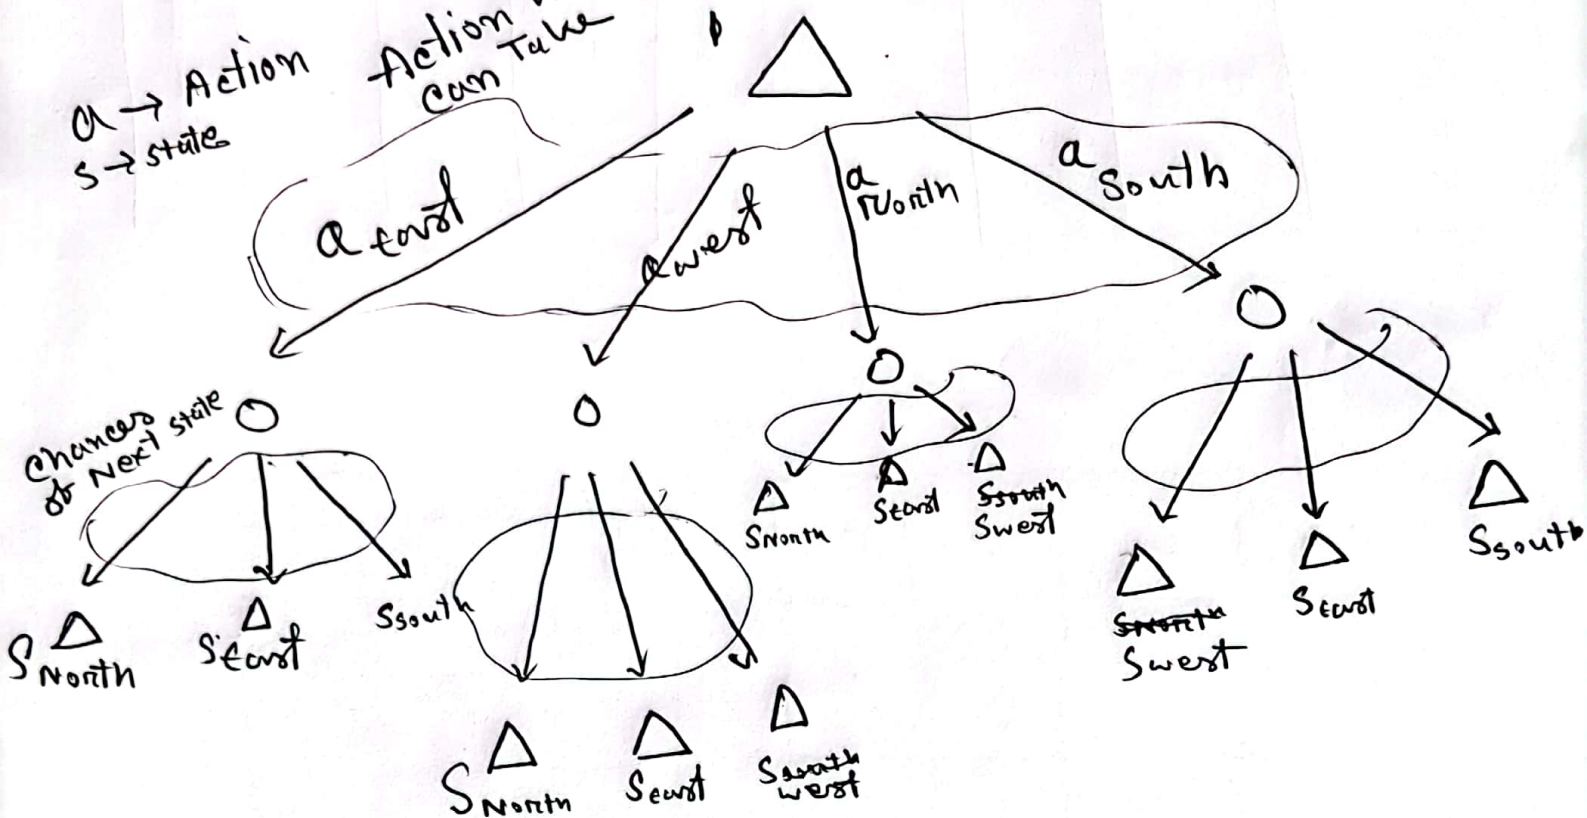 a → Action
s → state
Action
can Take
a East
a west
a North
a South
chances
of Next state
S North
S East
S South
S North
S East
S South
west
S North
S East
S South
S west
S North
S west
S East
S South